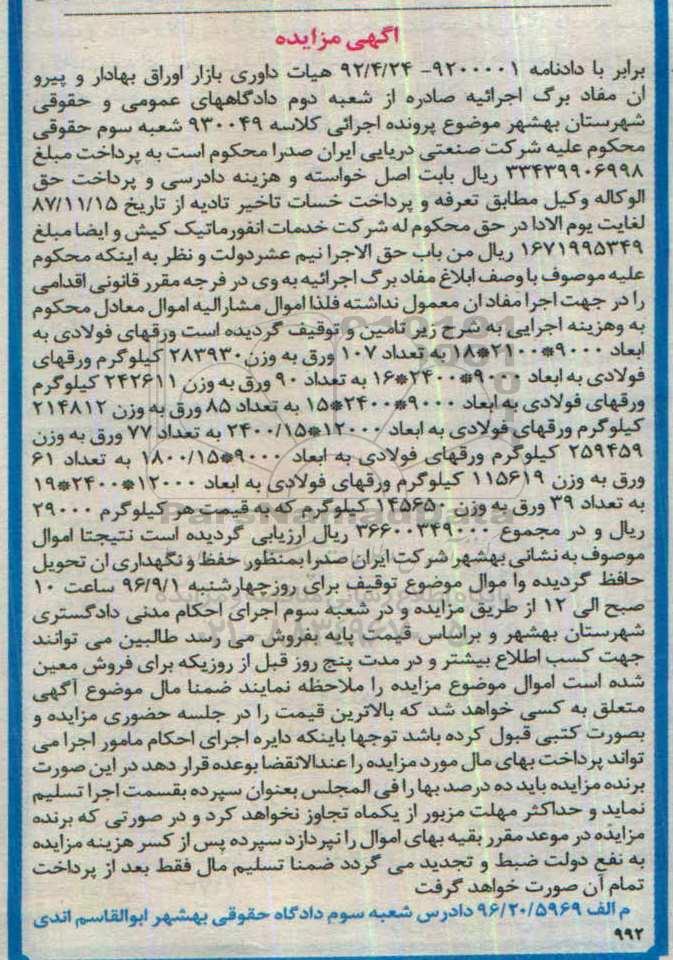 آگهی مزایده
برابر با دادنامه ۹۲۰۰۰۰۱- ۹۲/۴/۲۴ هیات داوری بازار اوراق بهادار و پیرو
ان مفاد برگ اجرائیه صادره از شعبه دوم دادگاههای عمومی و حقوقی
شهرستان بهشهر موضوع پرونده اجرائی کلاسه ۹۳۰۰۴۹ شعبه سوم حقوقی
محکوم علیه شرکت صنعتی دریایی ایران صدرا محکوم است به پرداخت مبلغ
۳۳۴۳۹۹۰۶۹۹۸ ریال بابت اصل خواسته و هزینه دادرسی و پرداخت حق
الوکاله وکیل مطابق تعرفه و پرداخت خسات تاخیر تادیه از تاریخ ۸۷/۱۱/۱۵
لغایت یوم الادا در حق محکوم له شرکت خدمات انفورماتیک کیش و ایضا مبلغ
۱۶۷۱۹۹۵۳۴۹ ریال من باب حق الاجرا نیم عشردولت و نظر به اینکه محکوم
علیه موصوف با وصف ابلاغ مفاد برگ اجرائیه به وی در فرجه مقرر قانونی اقدامی
را در جهت اجرا مفاد ان معمول نداشته فلذا اموال مشارالیه اموال معادل محکوم
به وهزینه اجرایی به شرح زیر تامین و توقیف گردیده است ورقهای فولادی به
ابعاد ۹۰۰۰*۲۱۰۰*۱۸ به تعداد ۱۰۷ ورق به وزن ۲۸۳۹۳۰ کیلوگرم ورقهای
فولادی به ابعاد ۹۰۰۰*۲۴۰۰*۱۶ به تعداد ۹۰ ورق به وزن ۲۴۲۶۱۱ کیلوگرم
ورقهای فولادی به ابعاد ۹۰۰۰*۲۴۰۰*۱۵ به تعداد ۸۵ ورق به وزن ۲۱۴۸۱۲
کیلوگرم ورقهای فولادی به ابعاد ۱۲۰۰۰*۲۴۰۰/۱۵ به تعداد ۷۷ ورق به وزن
۲۵۹۴۵۹ کیلوگرم ورقهای فولادی به ابعاد ۹۰۰۰*۱۸۰۰/۱۵ به تعداد ۶۱
ورق به وزن ۱۱۵۶۱۹ کیلوگرم ورقهای فولادی به ابعاد ۱۲۰۰۰*۲۴۰۰*۱۹
به تعداد ۳۹ ورق به وزن ۱۴۵۶۵۰ کیلوگرم که به قیمت هر کیلوگرم ۲۹۰۰۰
ریال و در مجموع ۳۶۶۰۰۳۴۹۰۰۰ ریال ارزیابی گردیده است نتیجتا اموال
موصوف به نشانی بهشهر شرکت ایران صدرا بمنظور حفظ و نگهداری ان تحویل
حافظ گردیده وا موال موضوع توقیف برای روزچهارشنبه ۹۶/۹/۱ ساعت ۱۰
صبح الی ۱۲ از طریق مزایده و در شعبه سوم اجرای احکام مدنی دادگستری
شهرستان بهشهر و براساس قیمت پایه بفروش می رسد طالبین می توانند
جهت کسب اطلاع بیشتر و در مدت پنج روز قبل از روزیکه برای فروش معین
شده است اموال موضوع مزایده را ملاحظه نمایند ضمنا مال موضوع آگهی
متعلق به کسی خواهد شد که بالاترین قیمت را در جلسه حضوری مزایده و
بصورت کتبی قبول کرده باشد توجها باینکه دایره اجرای احکام مامور اجرا می
تواند پرداخت بهای مال مورد مزایده را عندالانقضا بوعده قرار دهد در این صورت
برنده مزایده باید ده درصد بها را فی المجلس بعنوان سپرده بقسمت اجرا تسلیم
نماید و حداکثر مهلت مزبور از یکماه تجاوز نخواهد کرد و در صورتی که برنده
مزایده در موعد مقرر بقیه بهای اموال را نپردازد سپرده پس از کسر هزینه مزایده
به نفع دولت ضبط و تجدید می گردد ضمنا تسلیم مال فقط بعد از پرداخت
تمام آن صورت خواهد گرفت
م الف ۹۶/۲۰/۵۹۶۹ دادرس شعبه سوم دادگاه حقوقی بهشهر ابوالقاسم اندی
۹۹۲